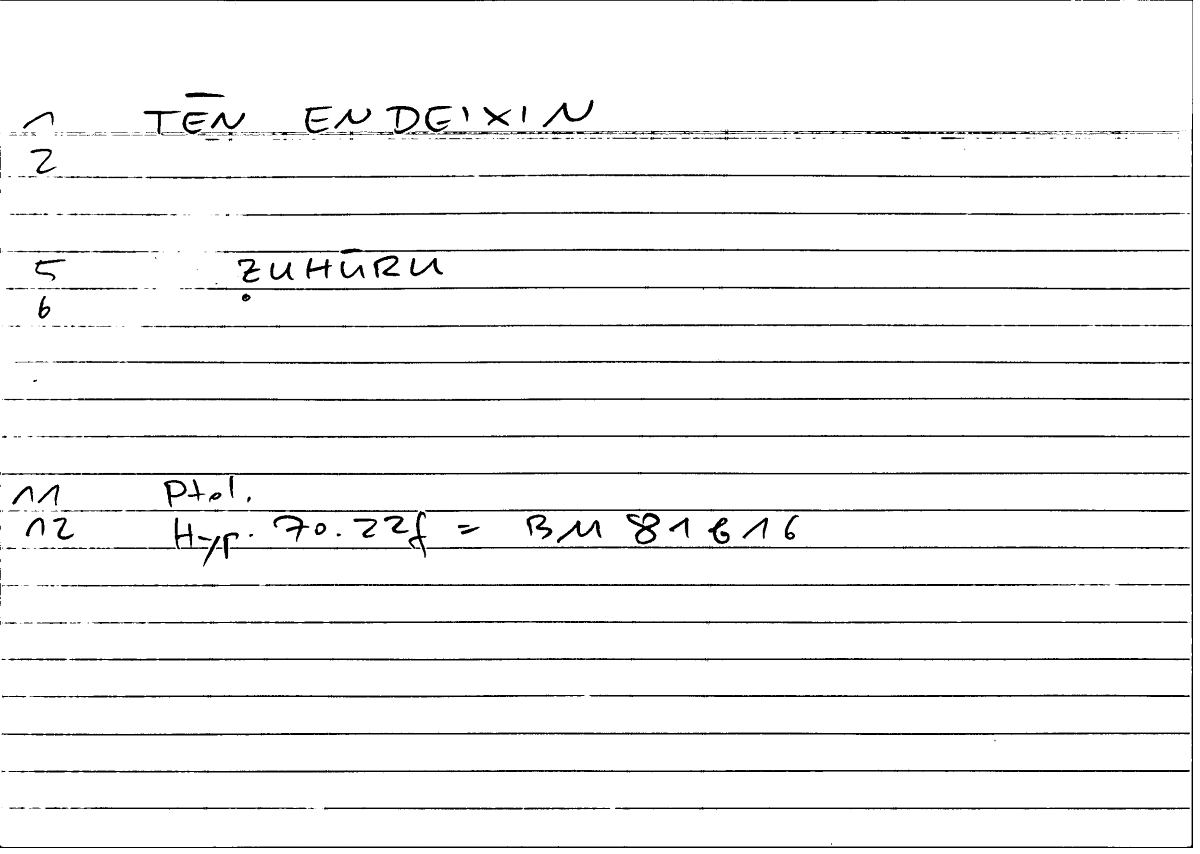 1 TĒN ENDEIXIN
2
5 ẒUHŪRU
6
11 Ptol.
12 Hyp. 70.22f = BM 81b16